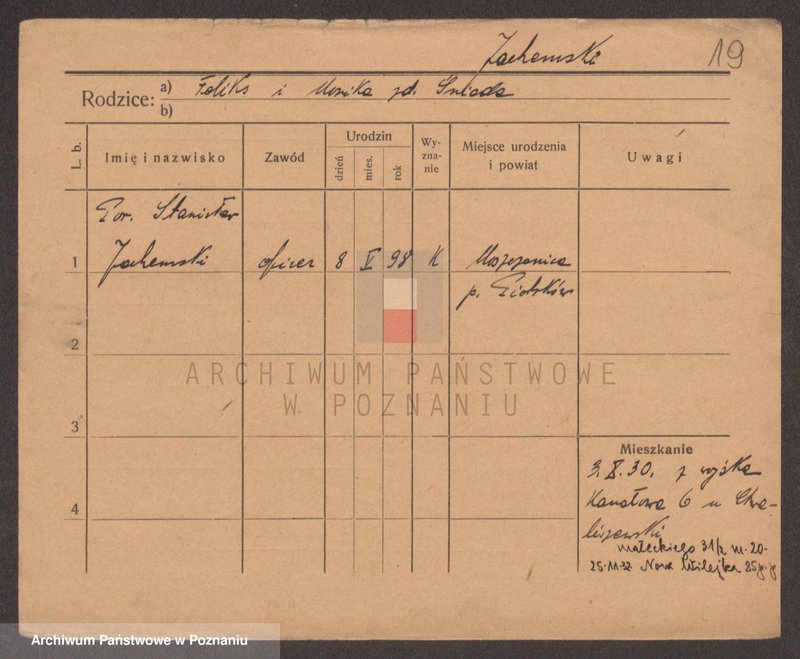 Jachemski
19
Rodzice: a) Feliks i Monika zd. Śniada
b)
L. b.
Imię i nazwisko
Zawód
Urodzin
dzień
mies.
rok
Wy-
zna-
nie
Miejsce urodzenia
i powiat
Uwagi
Por. Stanisław
1 Jachemski oficer 8 V 98 K Moszczenica
p. Piotrków
2
ARCHIWUM PAŃSTWOWE
W POZNANIU
3
Mieszkanie
3.X.30. z wojska
4 Kanałowa 6 u Chwa-
liszewski
Małeckiego 31/2 m. 20-
25-11-32 Nowa Wilejka 85 p.p
Archiwum Państwowe w Poznaniu